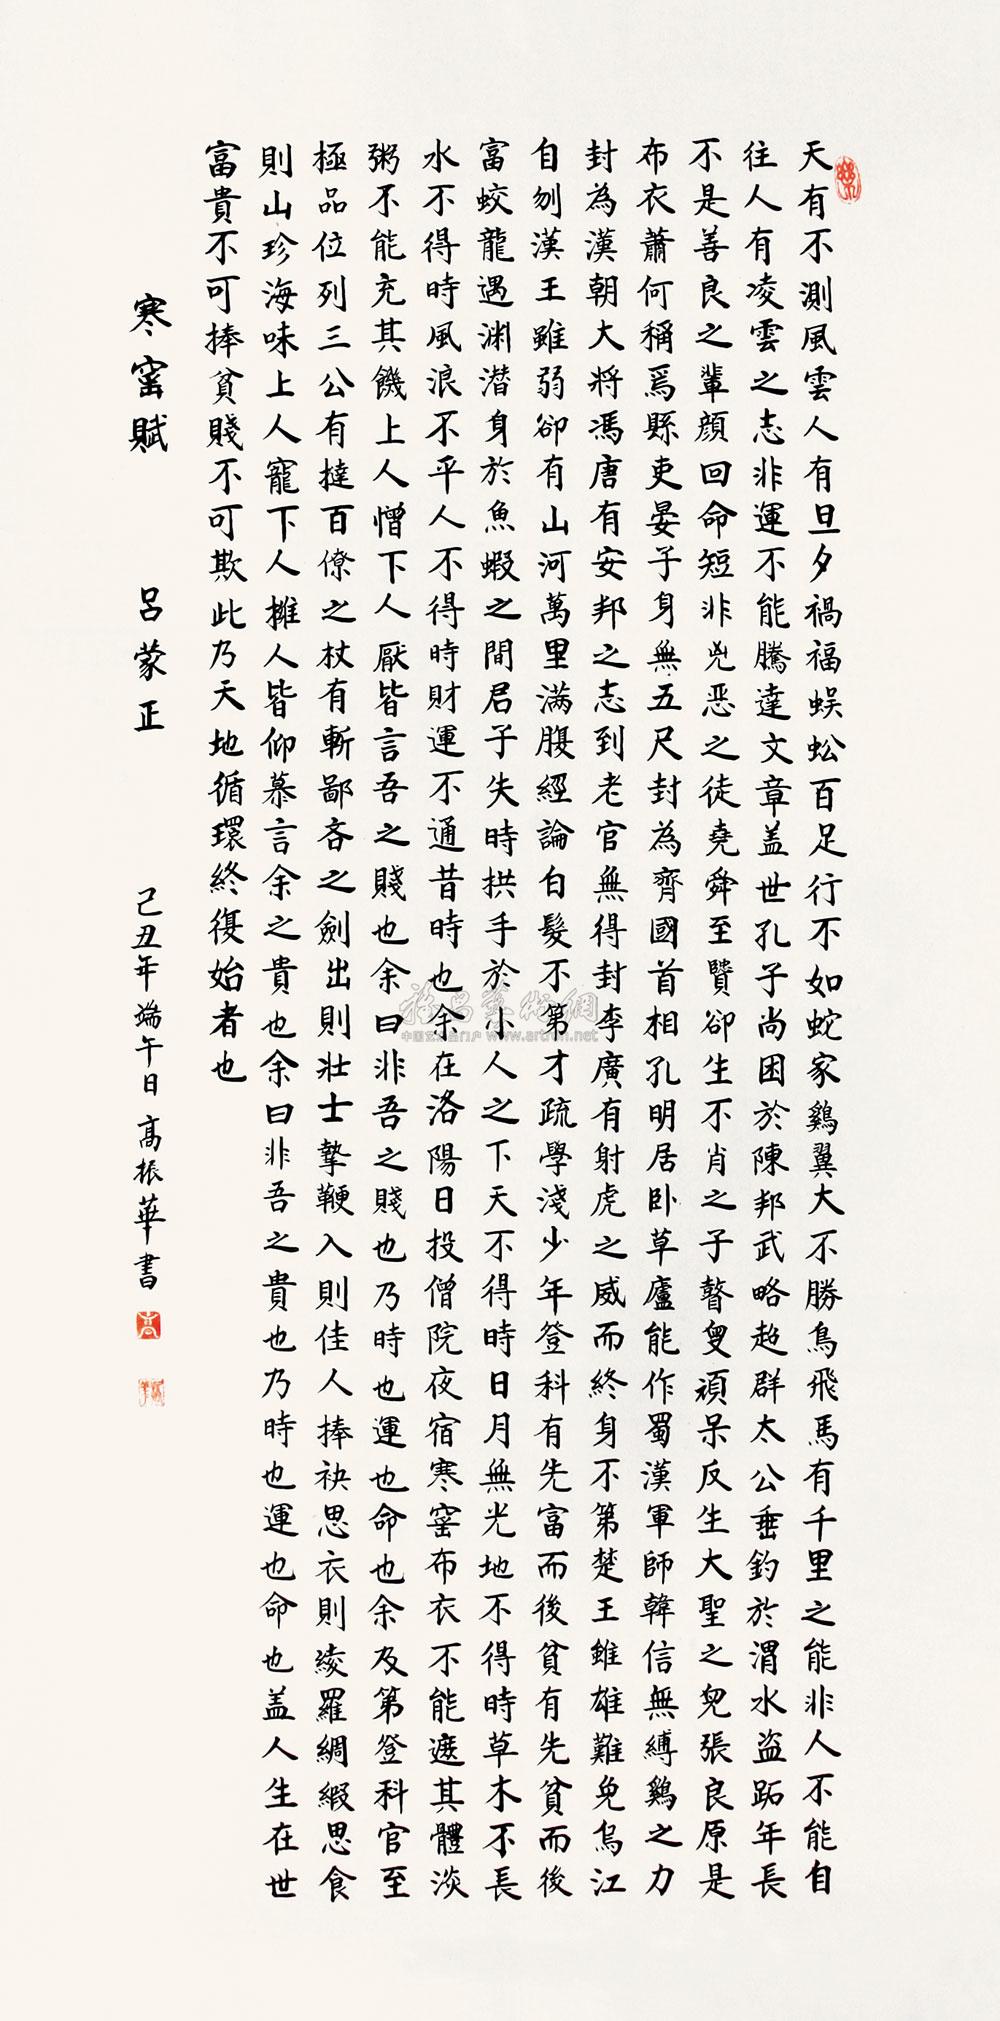 天有不測風雲人有旦夕禍福蜈蚣百足行不如蛇家鷄翼大不勝鳥飛馬有千里之能非人不能自
往人有凌雲之志非運不能騰達文章盖世孔子尚困於陳邦武略超群太公垂釣於渭水盗跖年長
不是善良之輩顔回命短非兇恶之徒堯舜至賢卻生不肖之子瞽叟頑呆反生大聖之兒張良原是
布衣蕭何稱爲縣吏晏子身無五尺封為齊國首相孔明居卧草廬能作蜀漢軍師韓信無縛鷄之力
封為漢朝大將馮唐有安邦之志到老官無得封李廣有射虎之威而終身不第楚王雖雄難免烏江
自刎漢王雖弱卻有山河萬里滿腹經論白髮不第才疏學淺少年登科有先富而後貧有先貧而後
富蛟龍遇渊潜身於魚蝦之間君子失時拱手於小人之下天不得時日月無光地不得時草木不長
水不得時風浪不平人不得時財運不通昔時也余在洛陽日投僧院夜宿寒窑布衣不能遮其體淡
粥不能充其饑上人憎下人厭皆言吾之賤也余曰非吾之賤也乃時也運也命也余及第登科官至
極品位列三公有撻百僚之杖有斬鄙吝之劍出則壯士摯鞭入則佳人捧袂思衣則綾羅綢緞思食
則山珍海味上人寵下人擁人皆仰慕言余之貴也余曰非吾之貴也乃時也運也命也盖人生在世
富貴不可捧貧賤不可欺此乃天地循環終復始者也
寒窑賦 呂蒙正 己丑年端午日高振華書
中国艺术品门户 www.artron.net